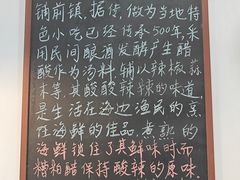 铺前镇,据传,做为当地特
色小吃已经传承500年,采
用民间酿酒发酵产生醋
酸作为汤料,辅以辣椒蒜
末等其酸酸辣辣的味道
是生活在海边渔民的烹
任海鲜的佳品,煮熟的
海鲜锁住了其鲜味时而
糟粕醋保持酸辣的原味.